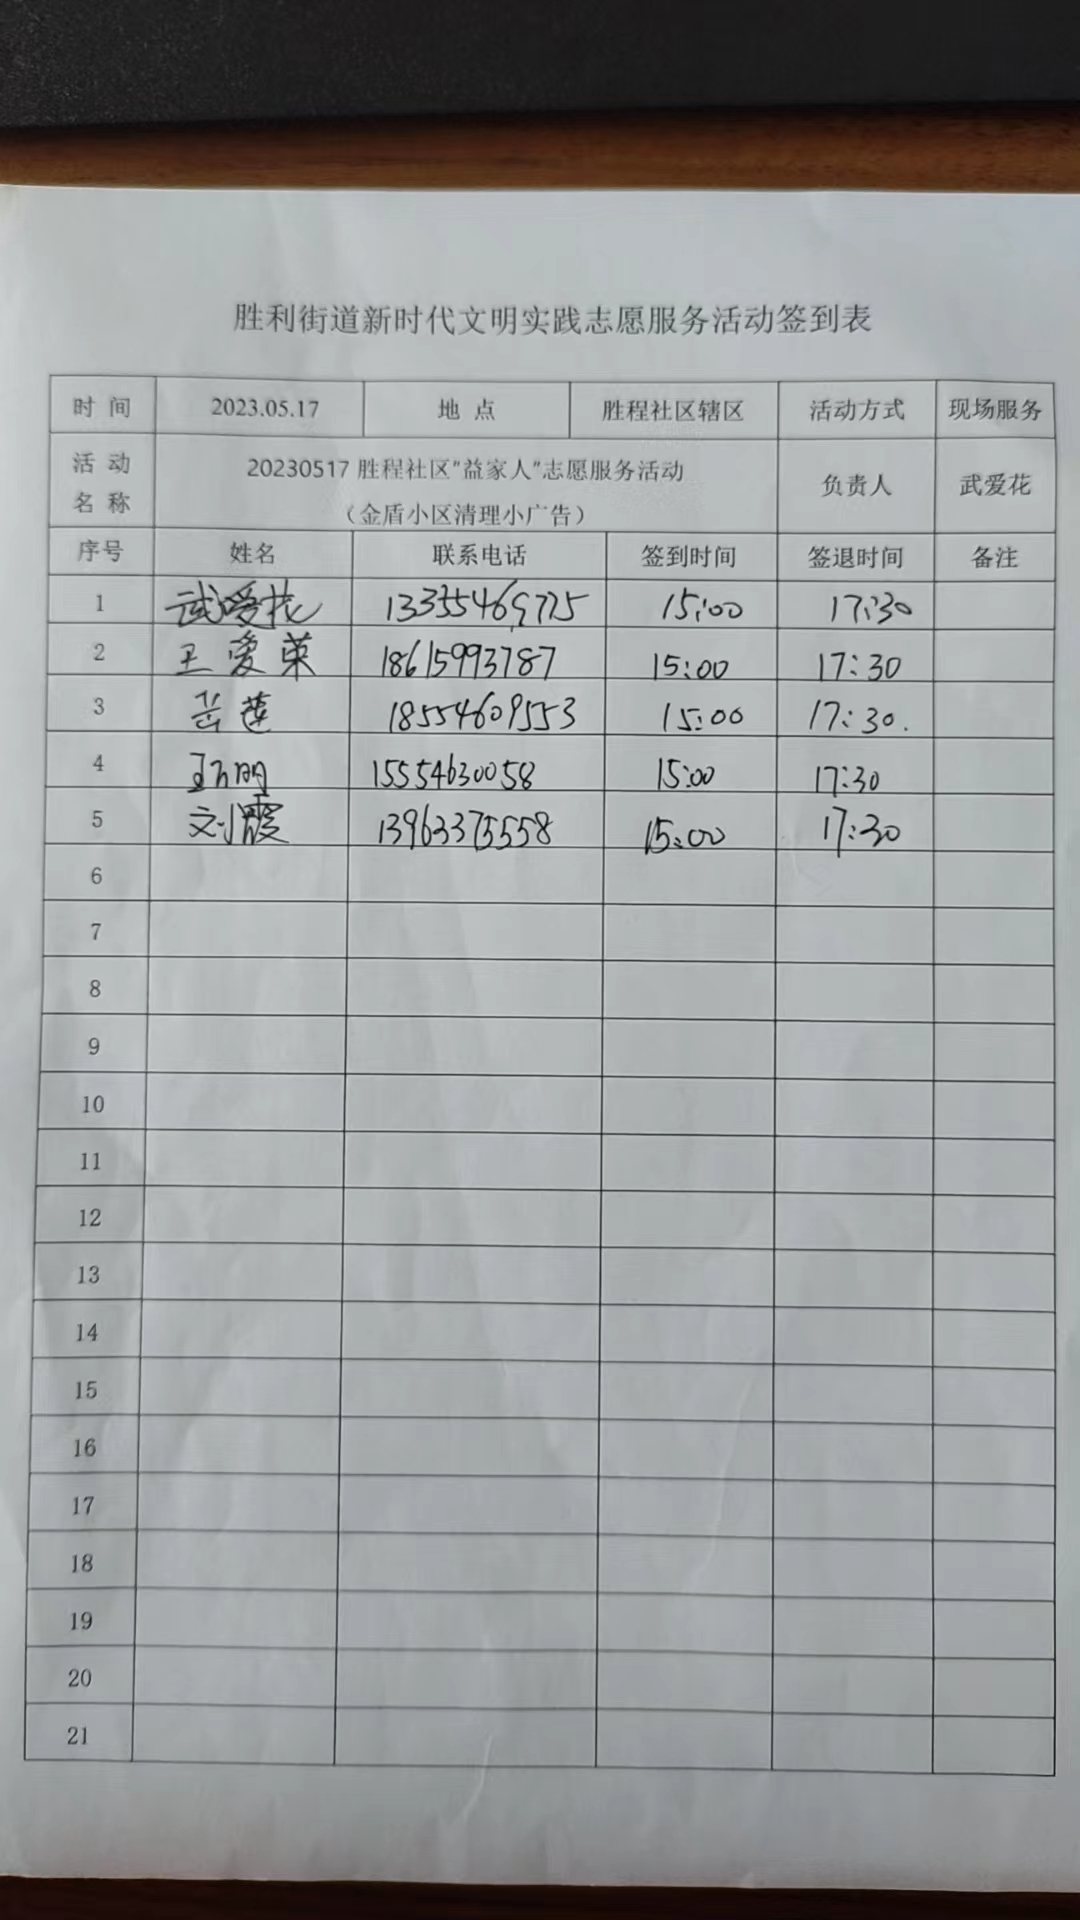 胜利街道新时代文明实践志愿服务活动签到表
时 间 2023.05.17 地 点 胜程社区辖区 活动方式 现场服务
活 动 名 称 20230517 胜程社区"益家人"志愿服务活动 负责人 武爱花
（金盾小区清理小广告）
序号 姓名 联系电话 签到时间 签退时间 备注
1 武爱花 13355469775 15:00 17:30
2 王爱荣 18615993787 15:00 17:30
3 岳莲 18554609553 15:00 17:30.
4 15554630058 15:00 17:30
5 刘霞 13963375558 15:00 17:30
6
7
8
9
10
11
12
13
14
15
16
17
18
19
20
21